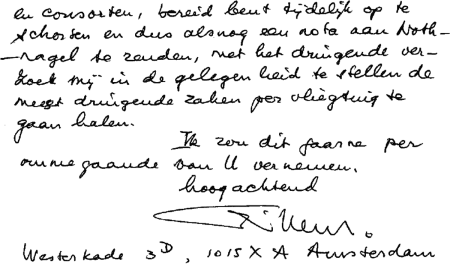 en consorten, bereid bent tijdelijk op te
schorten en dus alsnog een nota aan Noth-
-nagel te zenden, met het dringende ver-
zoek mij in de gelegenheid te stellen de
meest dringende zaken per vliegtuig te
gaan halen.
Ik zou dit gaarne per
ommegaande van U vernemen.
hoogachtend
Westerkade 3D, 1015 XA Amsterdam